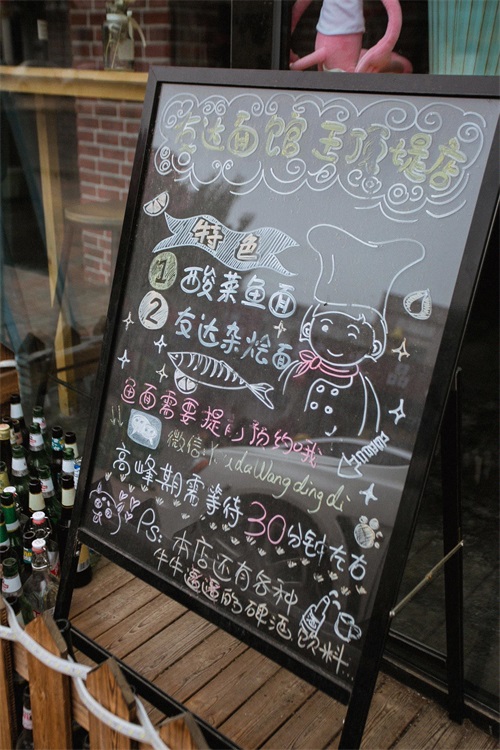 友达面馆 王顶堤店
特色
1 酸菜鱼面
2 友达杂烩面
鱼面需要提前预约哦
微信: YxdaWangdingdi
高峰期需等待30分钟左右
Ps: 本店还有各种
牛牛逼逼的啤酒饮料...